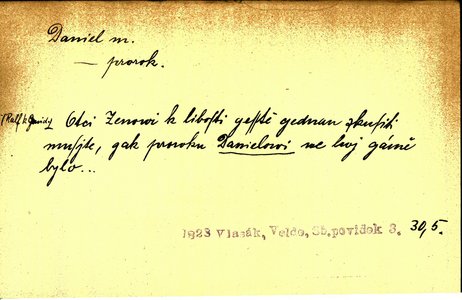 Daniel m.
— prorok.
Otci Zenowi k libosti gesstě gednau zkusiti
musyte, gak proroku Danielowi we lwj gámě
bylo...
1923 Vlasák, Veldo, Sb.povídek 3. 30,5.